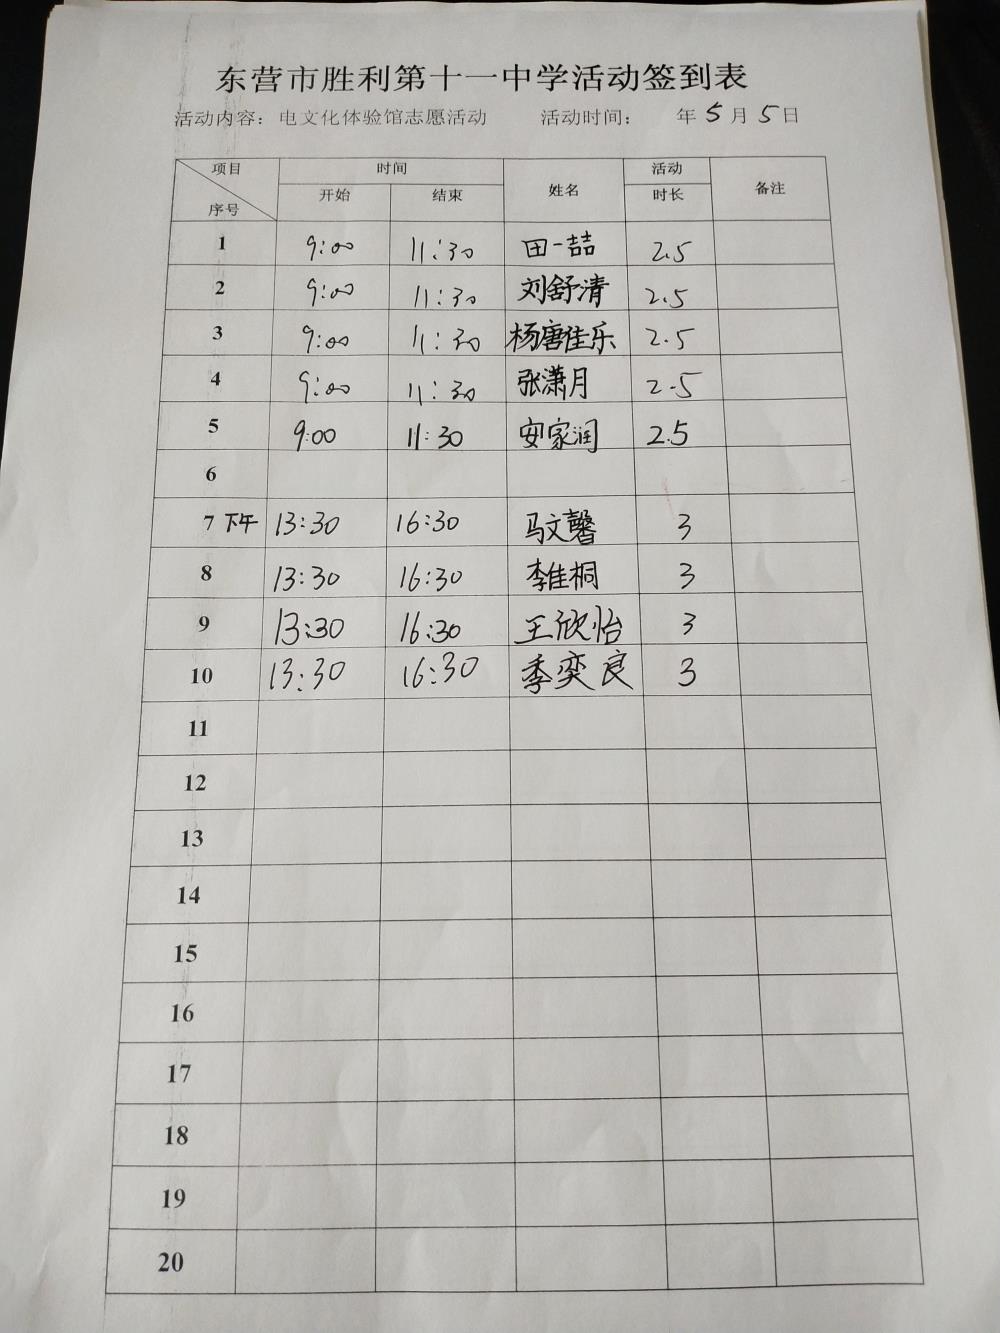 东营市胜利第十一中学活动签到表
活动内容：电文化体验馆志愿活动 活动时间： 年5月5日
项目 时间 姓名 活动 备注
序号 开始 结束 时长
1 9:00 11:30 田一喆 2.5
2 9:00 11:30 刘舒清 2.5
3 9:00 11:30 杨唐佳乐 2.5
4 9:00 11:30 张潇月 2.5
5 9:00 11:30 安家润 2.5
6
7 下午 13:30 16:30 马文馨 3
8 13:30 16:30 李佳桐 3
9 13:30 16:30 王欣怡 3
10 13:30 16:30 季奕良 3
11
12
13
14
15
16
17
18
19
20